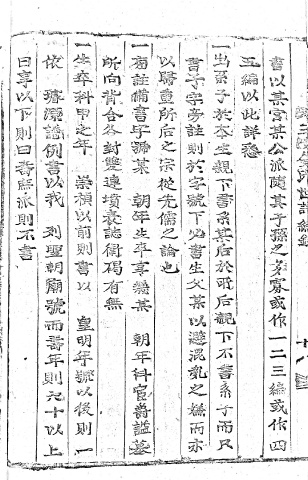 書以某宮某公派隨其子孫之多寡或作一二三編或作四
五編以此詳悉
一出系子於本生親下書系某后於所后親下不書系子而只
書子字旁註則於字號下必書生父某以避混亂之嫌而亦
以歸重所后之宗從先儒之論也
一旁註備書字號某 朝年生卒享幾某 朝年科官爵謚墓
所向背合各封雙連墳表誌衛碣有無
一生卒科甲之年 崇禎以前則書以 皇明年號以後則一
依 璿源譜例書以我 列聖朝廟號而壽年則六十以上
曰享以下則曰壽無派則不書